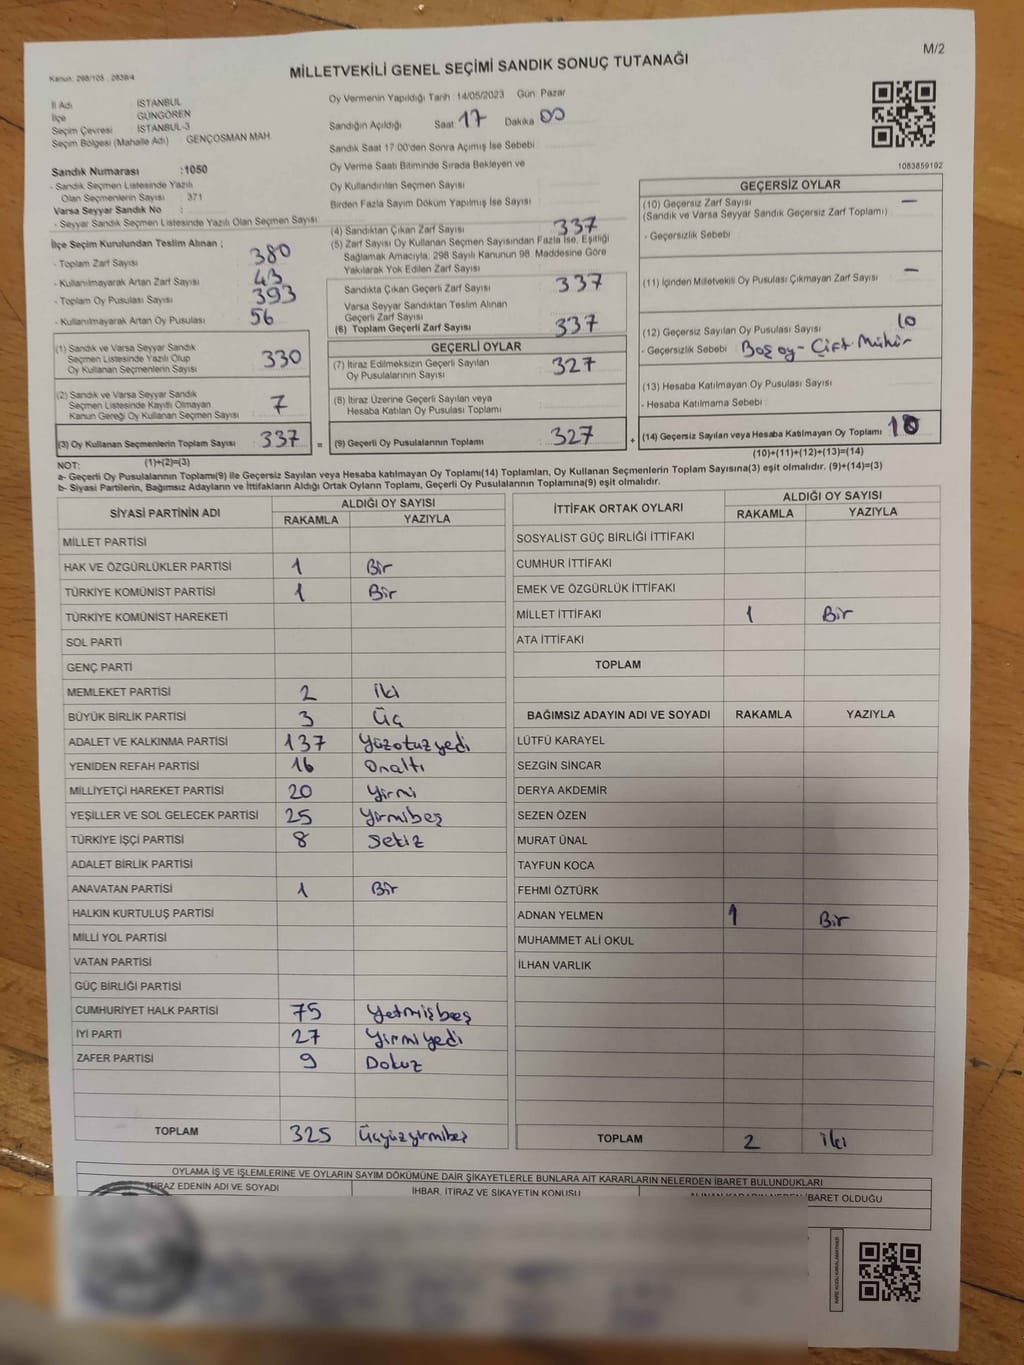 M/2
Kanun: 298/105 , 2839/4
MİLLETVEKİLİ GENEL SEÇİMİ SANDIK SONUÇ TUTANAĞI
İl Adı İSTANBUL
İlçe GÜNGÖREN
Seçim Çevresi İSTANBUL-3
Seçim Bölgesi (Mahalle Adı) GENÇOSMAN MAH
Sandık Numarası :1050
- Sandık Seçmen Listesinde Yazılı
Olan Seçmenlerin Sayısı : 371
Varsa Seyyar Sandık No :
- Seyyar Sandık Seçmen Listesinde Yazılı Olan Seçmen Sayısı:
Oy Vermenin Yapıldığı Tarih :14/05/2023 Gün: Pazar
Sandığın Açıldığı Saat 17 Dakika 00
Sandık Saat 17:00'den Sonra Açımış İse Sebebi
Oy Verme Saati Bitiminde Sırada Bekleyen ve
Oy Kullandırılan Seçmen Sayısı
Birden Fazla Sayım Döküm Yapılmış İse Sayısı
1083859192
İlçe Seçim Kurulundan Teslim Alınan ;
- Toplam Zarf Sayısı 380
- Kullanılmayarak Artan Zarf Sayısı 43
- Toplam Oy Pusulası Sayısı 393
- Kullanılmayarak Artan Oy Pusulası 56
(1) Sandık ve Varsa Seyyar Sandık
Seçmen Listesinde Yazılı Olup
Oy Kullanan Seçmenlerin Sayısı 330
(2) Sandık ve Varsa Seyyar Sandık
Seçmen Listesinde Kayıtlı Olmayan
Kanun Gereği Oy Kullanan Seçmen Sayısı 7
(3) Oy Kullanan Seçmenlerin Toplam Sayısı 337 =
(1)+(2)=(3)
(4) Sandıktan Çıkan Zarf Sayısı 337
(5) Zarf Sayısı Oy Kullanan Seçmen Sayısından Fazla İse, Eşitliği
Sağlamak Amacıyla; 298 Sayılı Kanunun 98. Maddesine Göre
Yakılarak Yok Edilen Zarf Sayısı
Sandıkta Çıkan Geçerli Zarf Sayısı 337
Varsa Seyyar Sandıktan Teslim Alınan
Geçerli Zarf Sayısı
(6) Toplam Geçerli Zarf Sayısı 337
GEÇERLİ OYLAR
(7) İtiraz Edilmeksizin Geçerli Sayılan
Oy Pusulalarının Sayısı 327
(8) İtiraz Üzerine Geçerli Sayılan veya
Hesaba Katılan Oy Pusulası Toplamı
(9) Geçerli Oy Pusulalarının Toplamı 327 +
GEÇERSİZ OYLAR
(10) Geçersiz Zarf Sayısı —
(Sandık ve Varsa Seyyar Sandık Geçersiz Zarf Toplamı)
- Geçersizlik Sebebi
(11) İçinden Milletvekili Oy Pusulası Çıkmayan Zarf Sayısı —
(12) Geçersiz Sayılan Oy Pusulası Sayısı 10
- Geçersizlik Sebebi Boş oy - Çift Mühür
(13) Hesaba Katılmayan Oy Pusulası Sayısı
- Hesaba Katılmama Sebebi
(14) Geçersiz Sayılan veya Hesaba Katılmayan Oy Toplamı 10
(10)+(11)+(12)+(13)=(14)
NOT:
a- Geçerli Oy Pusulalarının Toplamı(9) ile Geçersiz Sayılan veya Hesaba katılmayan Oy Toplamı(14) Toplamları, Oy Kullanan Seçmenlerin Toplam Sayısına(3) eşit olmalıdır. (9)+(14)=(3)
b- Siyasi Partilerin, Bağımsız Adayların ve İttifakların Aldığı Ortak Oyların Toplamı, Geçerli Oy Pusulalarının Toplamına(9) eşit olmalıdır.
SİYASİ PARTİNİN ADI ALDIĞI OY SAYISI
RAKAMLA YAZIYLA
MİLLET PARTİSİ
HAK VE ÖZGÜRLÜKLER PARTİSİ 1 Bir
TÜRKİYE KOMÜNİST PARTİSİ 1 Bir
TÜRKİYE KOMÜNİST HAREKETİ
SOL PARTİ
GENÇ PARTİ
MEMLEKET PARTİSİ 2 iki
BÜYÜK BİRLİK PARTİSİ 3 Üç
ADALET VE KALKINMA PARTİSİ 137 Yüzotuzyedi
YENİDEN REFAH PARTİSİ 16 Onaltı
MİLLİYETÇİ HAREKET PARTİSİ 20 Yirmi
YEŞİLLER VE SOL GELECEK PARTİSİ 25 Yirmibeş
TÜRKİYE İŞÇİ PARTİSİ 8 Sekiz
ADALET BİRLİK PARTİSİ
ANAVATAN PARTİSİ 1 Bir
HALKIN KURTULUŞ PARTİSİ
MİLLİ YOL PARTİSİ
VATAN PARTİSİ
GÜÇ BİRLİĞİ PARTİSİ
CUMHURİYET HALK PARTİSİ 75 Yetmişbeş
İYİ PARTİ 27 Yirmiyedi
ZAFER PARTİSİ 9 Dokuz
TOPLAM 325 Üçyüzyirmibeş
İTTİFAK ORTAK OYLARI ALDIĞI OY SAYISI
RAKAMLA YAZIYLA
SOSYALİST GÜÇ BİRLİĞİ İTTİFAKI
CUMHUR İTTİFAKI
EMEK VE ÖZGÜRLÜK İTTİFAKI
MİLLET İTTİFAKI 1 Bir
ATA İTTİFAKI
TOPLAM
BAĞIMSIZ ADAYIN ADI VE SOYADI RAKAMLA YAZIYLA
LÜTFÜ KARAYEL
SEZGİN SİNCAR
DERYA AKDEMİR
SEZEN ÖZEN
MURAT ÜNAL
TAYFUN KOCA
FEHMİ ÖZTÜRK
ADNAN YELMEN 1 Bir
MUHAMMET ALİ OKUL
İLHAN VARLIK
TOPLAM 2 iki
OYLAMA İŞ VE İŞLEMLERİNE VE OYLARIN SAYIM DÖKÜMÜNE DAİR ŞİKAYETLERLE BUNLARA AİT KARARLARIN NELERDEN İBARET BULUNDUKLARI
İTİRAZ EDENİN ADI VE SOYADI İHBAR, İTİRAZ VE ŞİKAYETİN KONUSU ALINAN KARARIN NEDEN İBARET OLDUĞU